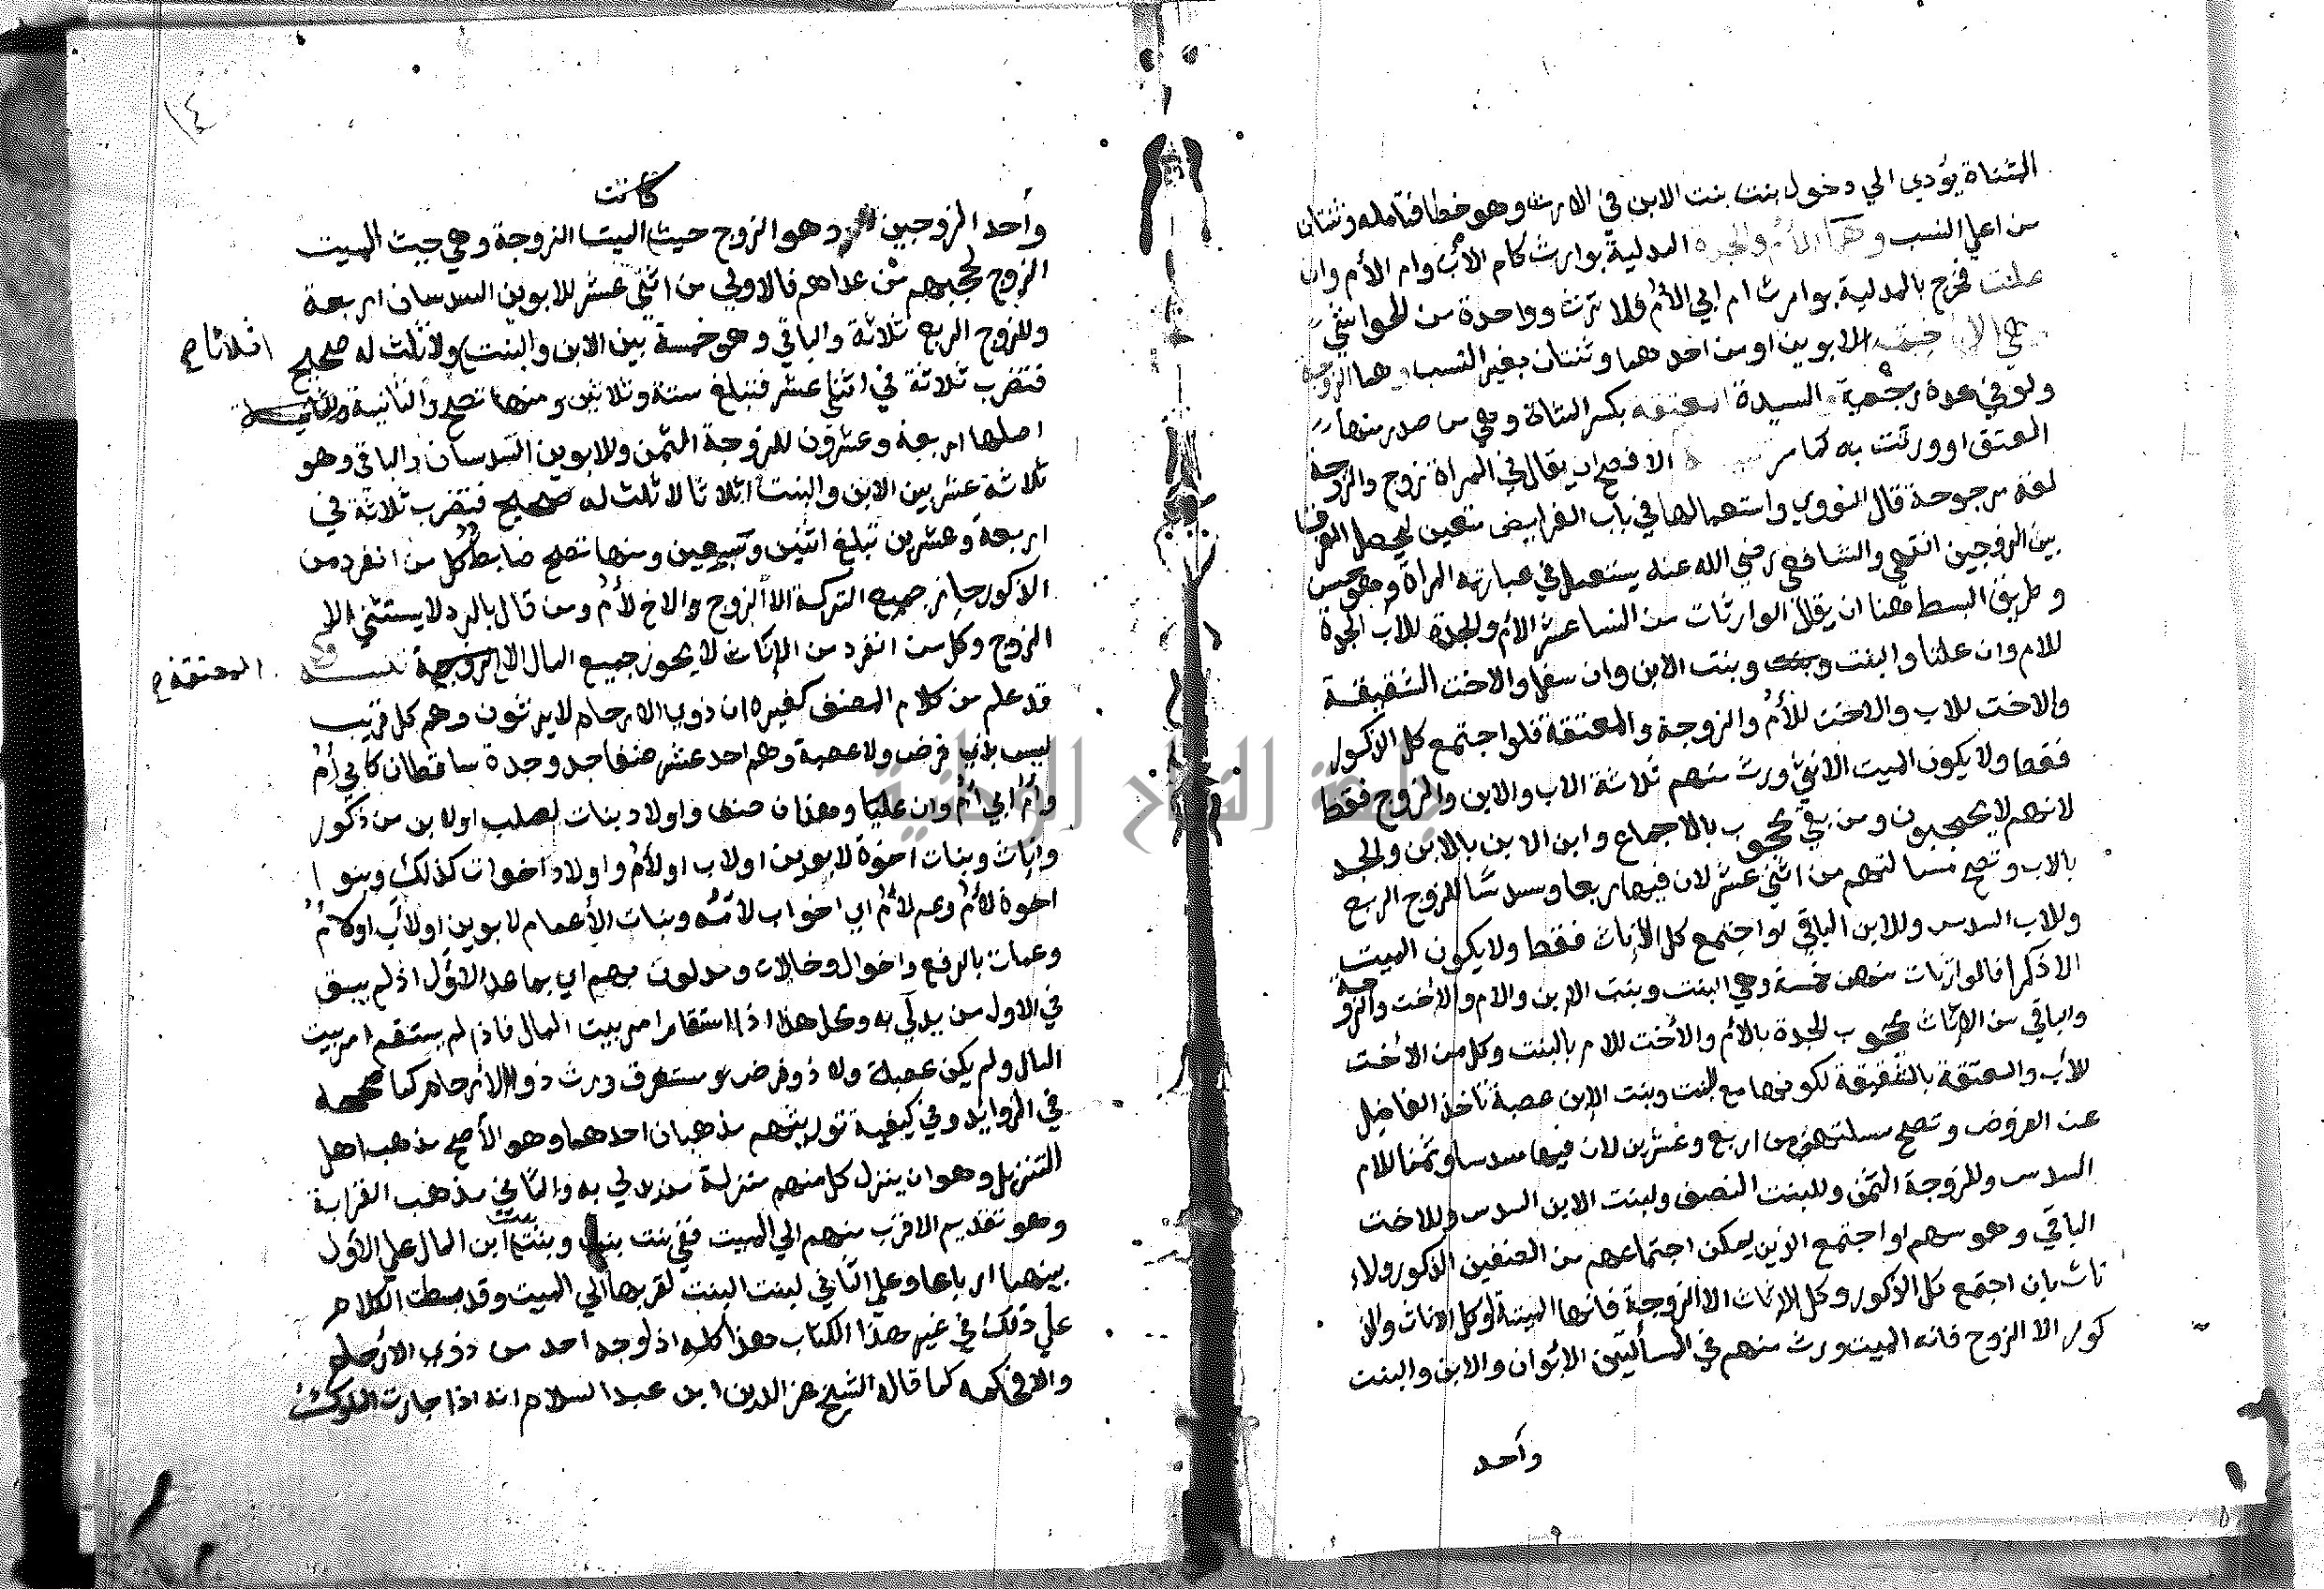 المثناة يؤدي الي دخول بنت بنت الابن في الارث وهو خطا فتامله وثنتان
من اعلي النسب وهما الأم والجدة المدلية بوارث كام الأب وام الأم وان
علت فخرج بالمدلية بوارث ام ابي الأم فلا ترث وواحدة من الحواشي
وهي الاخت الابوين او من احدهما وثنتان بغير النسب وهما الزوجة
ولو في عدة رجعية والسيدة المعتقة بكسر المثناة وهي من صدر منها
العتق او ورثت به كما مر الافصح ان يقال في المراة زوج والزوجة
لغة مرجوحة قال النووي واستعمالها في باب الفرايض متعين ليحصل الفرق
بين الزوجين انتهي والشافعي رضي الله عنه يستعمل في عبارته المراة وهو حسن
وطريق البسط هنا ان يقال الوارثات من النسا عشر الأم والجدة للاب الجدة
للام وان علتا والبنت وبنت الابن وان سفل والاخت الشقيقة
والاخت للاب والاخت للأم والزوجة والمعتقة فلو اجتمع كل الذكور
فقط ولا يكون الميت الا انثي ورث منهم ثلاثة الاب والابن والزوج فقط
لانهم لا يحجبون ومن بقي محجوب بالاجماع وابن الابن بالابن والجد
بالاب وتصح مسالتهم من اثني عشر لان فيها ربعا وسدسا للزوج الربع
وللاب السدس وللابن الباقي لو اجتمع كل الإناث فقط ولا يكون الميت
الا ذكرا فالوارثات منهن خمسة وهي البنت وبنت الابن والام والاخت والزوجة
والباقي من الإناث محجوب الجدة بالأم والأخت للام بالبنت وكل من الأخت
للأب والمعتقة بالشقيقة لكونها مع البنت وبنت الإبن عصبة تاخذ الفاضل
عن الفروض وتصح مسلتهن من اربع وعشرين لان فيها سدسا وثمنا للام
السدس وللزوجة الثمن وللبنت النصف ولبنت الابن السدس وللاخت
الباقي وهو سهم او اجتمع الذين يمكن اجتماعهم من الصنفين الذكور والا
ناث بان اجتمع كل الذكور وكل الإناث الا الزوجة فانها الميتة او كل الاناث والذ
كور الا الزوج فانه الميت ورث منهم في المسألتين الابوان والابن والبنت
واحد
١٤
كانت
وأحد الزوجين وهو الزوج حيث الميت الزوجة وهي حيث الميت
الزوج لحجبهم من عداهم فالاولي من اثني عشر للابوين السدسان اربعة
وللزوج الربع ثلاثة والباقي وهو خمسة بين الابن والبنت ولا ثلث له صحيح
اثلاثا صح
فتضرب ثلاثة في اثنا عشر فتبلغ ستة وثلاثين ومنها تصح والثانية
اصلها اربعة وعشرون للزوجة الثمن وللابوين السدسان والباقي وهو
ثلاثة عشر بين الابن والبنت اثلاثا لا ثلث له صحيح فتضرب ثلاثة في
اربعة وعشرين تبلغ اثنين وسبعين ومنها تصح ضابط كل من انفرد من
الذكور حايز جميع التركة الا الزوج والاخ لأم ومن قال بالرد لا يستثني الا
الزوج وكل من انفرد من الإناث لا يحوز جميع المال الا الزوجة
المعتقة صح
قد علم من كلام المصنف كغيره ان ذوي الارحام لا يرثون وهم كل قريب
ليس بذي فرض ولا عصبة وهم احد عشر صنفا جد وجدة ساقطان كابي أم
وأم أبي أم وان عليا وهذان صنف واولاد بنات لصلب او لابن من ذكور
وإناث وبنات اخوة لابوين او لاب او لأم واولاد اخوات كذلك وبنوا
اخوة لأم وعم لأم اي اخو اب لامه وبنات الأعمام لابوين او لأب او لأم
وعمات بالرفع واخوال وخالات ومدلون بهم اي بما عدا الاول اذ لم يبق
في الاول من يدلي به ومحل هذا اذا استقام امر بيت المال فاذ لم يستقم امر بيت
المال ولم يكن عصبة ولا ذو فرض مستغرق ورث ذوا الارحام كما صححه
في الزوايد وفي كيفية توريثهم مذهبان احدهما وهو الأصح مذهب اهل
التنزيل وهو ان ينزل كل منهم منزلة من يدلي به والثاني مذهب القرابة
وهو تقديم الاقرب منهم الي الميت ففي بنت بنت وبنت بنت ابن المال علي الأول
بينهما ارباعا وعلي الثاني لبنت البنت لقربها الي الميت وقد بسطت الكلام
علي ذلك في غير هذا الكتاب هذا كله اذ لوجد احد من ذوي الأرحام
والا فحكمه كما قاله الشيخ عز الدين ابن عبد السلام انه اذا جارت الملوك